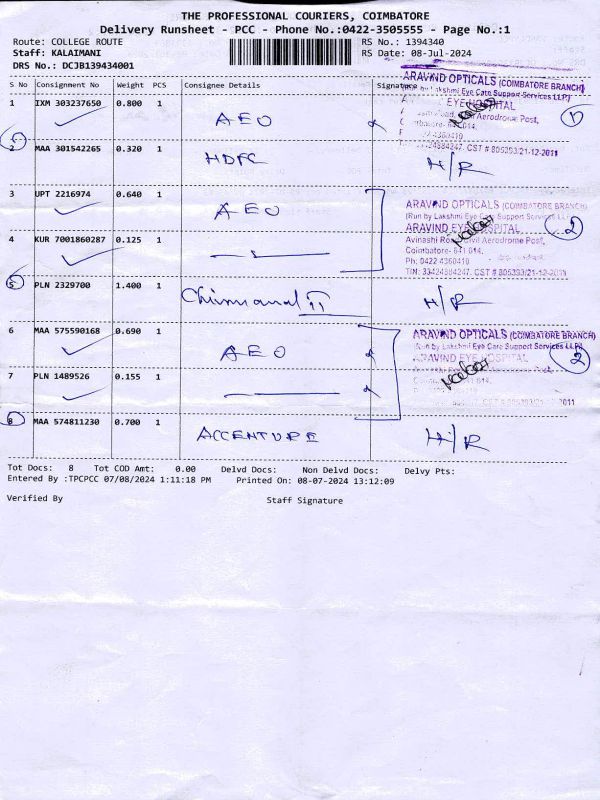 THE PROFESSIONAL COURIERS, COIMBATORE
Delivery Runsheet - PCC - Phone No.:0422-3505555 - Page No.:1
Route: COLLEGE ROUTE
RS No.: 1394340
Staff: KALAIMANI
RS Date: 08-Jul-2024
DRS No.: DCJB139434001
S No Consignment No Weight PCS Consignee Details Signature
ARAVIND OPTICALS (COIMBATORE BRANCH)
by Lakshmi Eye Care Support Services LLP)
1 IXM 303237650 0.800 1 AEO
EYE HOSPITAL
Aerodrome Post,
1
CST # 806393/21-12-2011
2 MAA 301542265 0.320 1 HDFC H/R
3 UPT 2216974 0.640 1 AEO
ARAVIND OPTICALS (COIMBATORE BRANCH)
(Run by Lakshmi Eye Care Support Services LLP)
ARAVIND EYE HOSPITAL
2
4 KUR 7001860287 0.125 1
Avinashi Road, Civil Aerodrome Post,
Coimbatore- 641 014.
Ph: 0422 4360410
TIN: 33424884247. CST # 806393/21-12-2011
5 PLN 2329700 1.400 1 H/R
6 MAA 575590168 0.690 1 AEO
ARAVIND OPTICALS (COIMBATORE BRANCH)
(Run by Lakshmi Eye Care Support Services LLP)
ARAVIND EYE HOSPITAL
2
7 PLN 1489526 0.155 1
8 MAA 574811230 0.700 1 ACCENTURE H/R
Tot Docs: 8 Tot COD Amt: 0.00 Delvd Docs: Non Delvd Docs: Delvy Pts:
Entered By :TPCPCC 07/08/2024 1:11:18 PM Printed On: 08-07-2024 13:12:09
Verified By Staff Signature